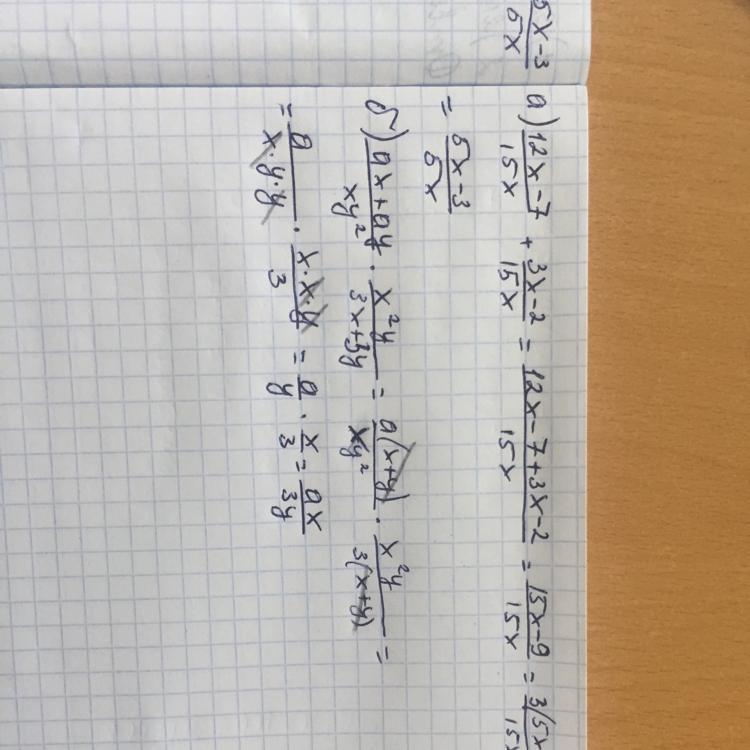 5x-3/5x
а) 12x-7/15x + 3x-2/15x = 12x-7+3x-2/15x = 15x-9/15x = 3(5x/15x
= 5x-3/5x
б) ax+ay/xy² · x²y/3x+3y = a(x+y)/xy² · x²y/3(x+y) =
= a/x·y·y · x·x·y/3 = a/y · x/3 = ax/3y